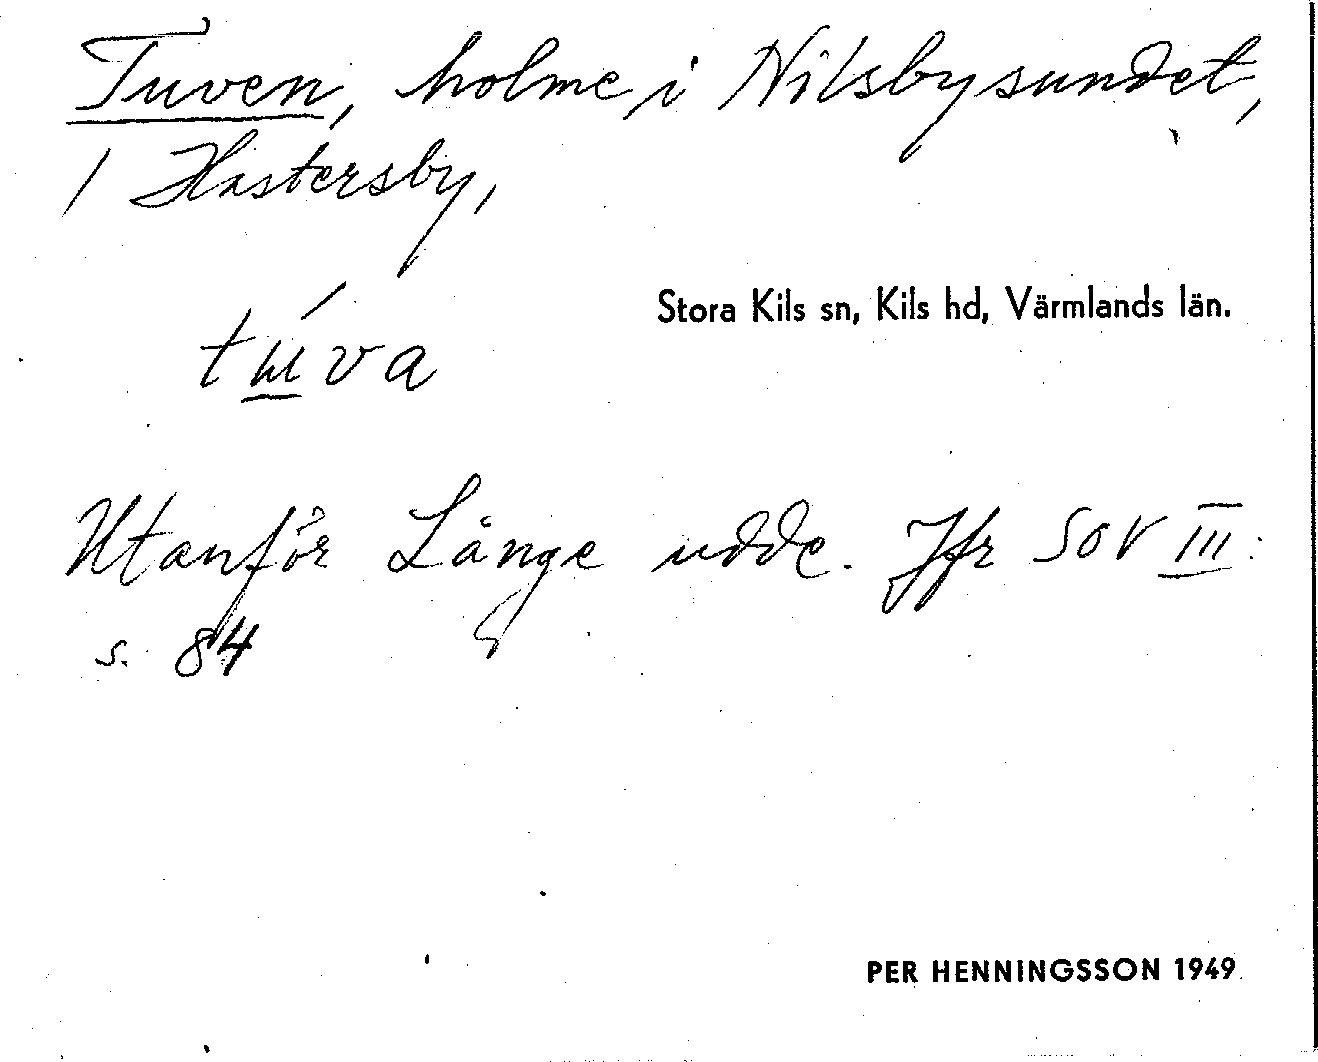 Tuven, holme, i Nilsbysundet,
/ Hastersby,
Stora Kils sn, Kils hd, Värmlands län.
túva
Utanför Långe udde. Jfr SOV III:
s. 84
PER HENNINGSSON 1949